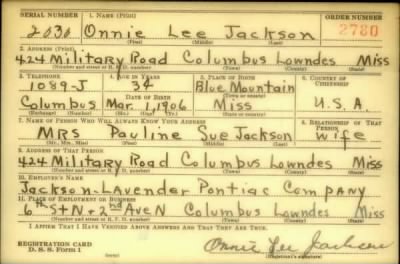 SERIAL NUMBER 1. NAME (Print) ORDER NUMBER
2030 Onnie Lee Jackson 2780
(First) (Middle) (Last)
2. ADDRESS (Print)
424 Military Road Columbus Lowndes Miss
(Number and street or R. F. D. number) (Town) (County) (State)
3. TELEPHONE 4. AGE IN YEARS 5. PLACE OF BIRTH 6. COUNTRY OF CITIZENSHIP
1089-J 34 Blue Mountain
DATE OF BIRTH (Town or county)
Columbus Mar. 1, 1906 Miss U.S.A.
(Exchange) (Number) (Mo.) (Day) (Yr.) (State or country)
7. NAME OF PERSON WHO WILL ALWAYS KNOW YOUR ADDRESS 8. RELATIONSHIP OF THAT PERSON
MRS Pauline Sue Jackson wife
(Mr., Mrs., Miss) (First) (Middle) (Last)
9. ADDRESS OF THAT PERSON
424 Military Road Columbus Lowndes Miss
(Number and street or R. F. D. number) (Town) (County) (State)
10. EMPLOYER'S NAME
Jackson-Lavender Pontiac Company
11. PLACE OF EMPLOYMENT OR BUSINESS
6th St N & 2nd Ave N Columbus Lowndes Miss
(Number and street or R. F. D. number) (Town) (County) (State)
I AFFIRM THAT I HAVE VERIFIED ABOVE ANSWERS AND THAT THEY ARE TRUE.
REGISTRATION CARD
D. S. S. Form 1 (over) Onnie Lee Jackson
(Registrant's signature)